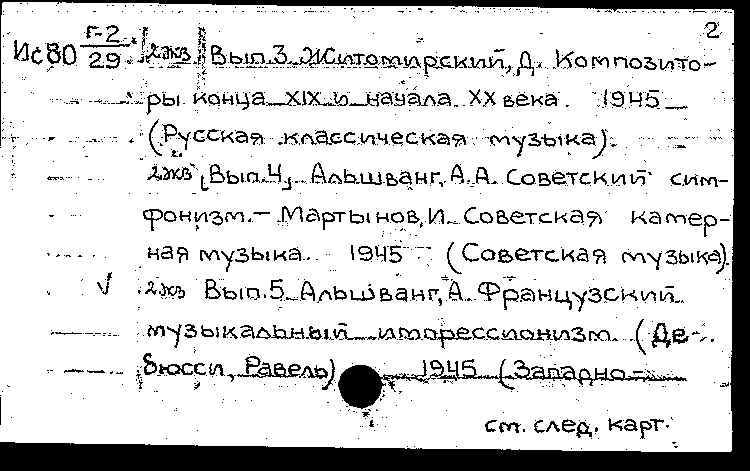 2
Ис80 Г-2/29 2экз Вып.3. Житомирский, Д. Композито-
ры конца XIX и начала XX века. 1945
(Русская классическая музыка).
2экз [Вып.4]. Альшванг, А.А. Советский сим-
фонизм. - Мартынов, И. Советская камер-
ная музыка. 1945 (Советская музыка).
√ 2экз Вып.5. Альшванг, А. Французский
музыкальный импрессионизм. (Де-
бюсси, Равель) 1945 (Западно-
см. след. карт.